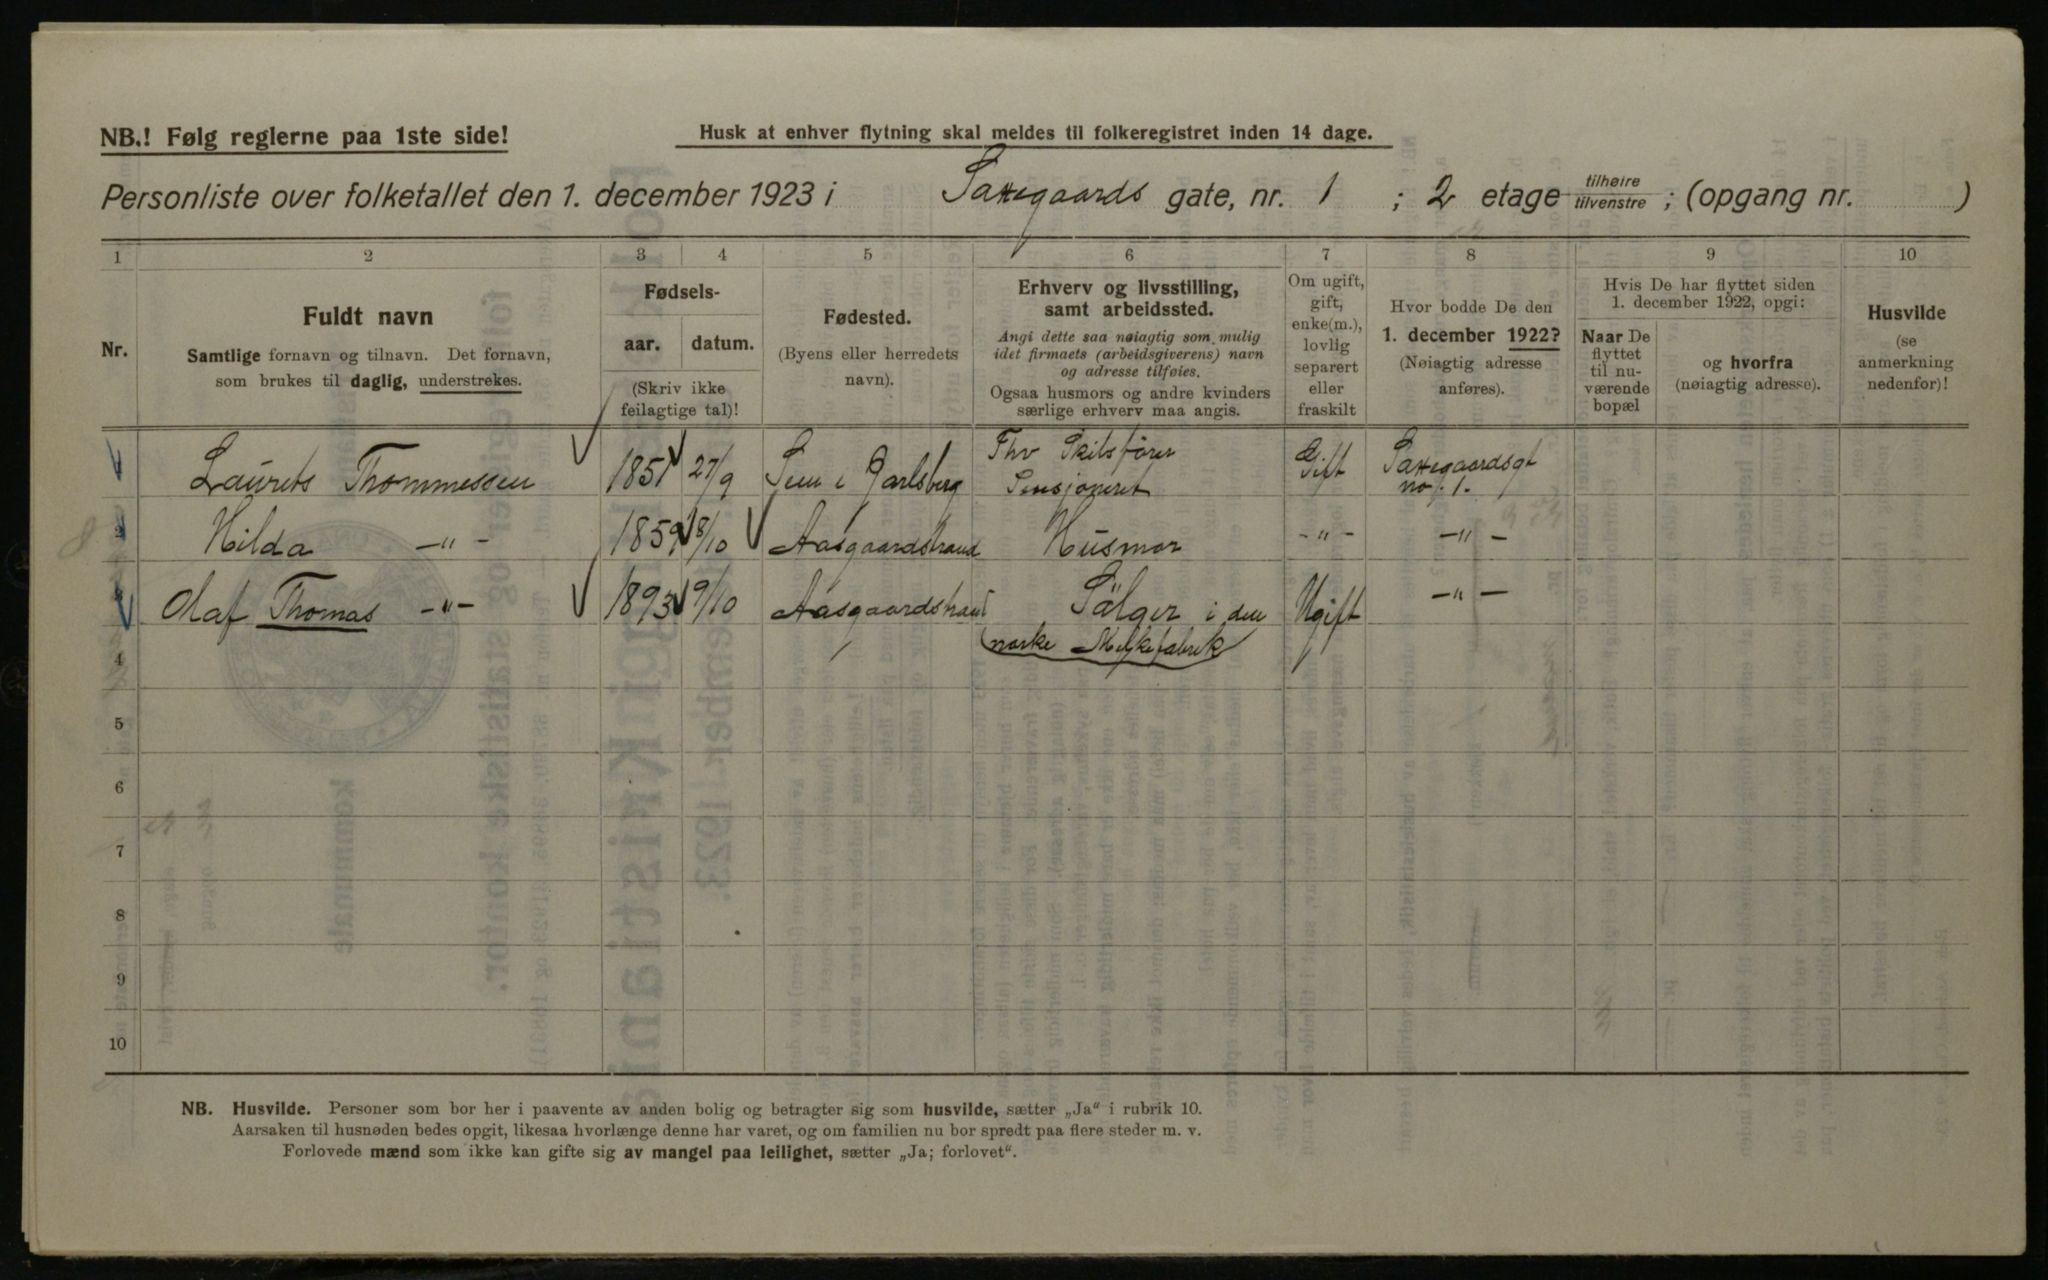 NB.! Følg reglerne paa 1ste side!
Husk at enhver flytning skal meldes til folkeregistret inden 14 dage.
Personliste over folketallet den 1. december 1923 i Saxegaards gate, nr. 1 ; 2 etage tilhøire tilvenstre ; (opgang nr. )
1 2 3 4 5 6 7 8 9 10
Nr.
Fuldt navn
Samtlige fornavn og tilnavn. Det fornavn,
som brukes til daglig, understrekes.
Fødsels-
aar. datum.
(Skriv ikke
feilagtige tal)!
Fødested.
(Byens eller herredets
navn).
Erhverv og livsstilling,
samt arbeidssted.
Angi dette saa nøiagtig som mulig
idet firmaets (arbeidsgiverens) navn
og adresse tilføies.
Ogsaa husmors og andre kvinders
særlige erhverv maa angis.
Om ugift,
gift,
enke(m.),
lovlig
separert
eller
fraskilt
Hvor bodde De den
1. december 1922?
(Nøiagtig adresse
anføres).
Hvis De har flyttet siden
1. december 1922, opgi:
Naar De
flyttet
til nu-
værende
bopæl
og hvorfra
(nøiagtig adresse).
Husvilde
(se
anmerkning
nedenfor)!
Laurets Thommessen 1851 27/9 Sem i Jarlsberg Fhv Skibsfører Pensjoneret Gift Saxegaardsgt no. 1.
2 Hilda -"- 1859 18/10 Aasgaardstrand Husmor -"- -"-
3 Olaf Thomas -"- 1893 9/10 Aasgaardstrand Sälger i den norske Melkefabrik Ugift -"-
4
5
6
7
8
9
10
NB. Husvilde. Personer som bor her i paavente av anden bolig og betragter sig som husvilde, sætter „Ja“ i rubrik 10.
Aarsaken til husnøden bedes opgit, likesaa hvorlænge denne har varet, og om familien nu bor spredt paa flere steder m. v.
Forlovede mænd som ikke kan gifte sig av mangel paa leilighet, sætter „Ja; forlovet“.